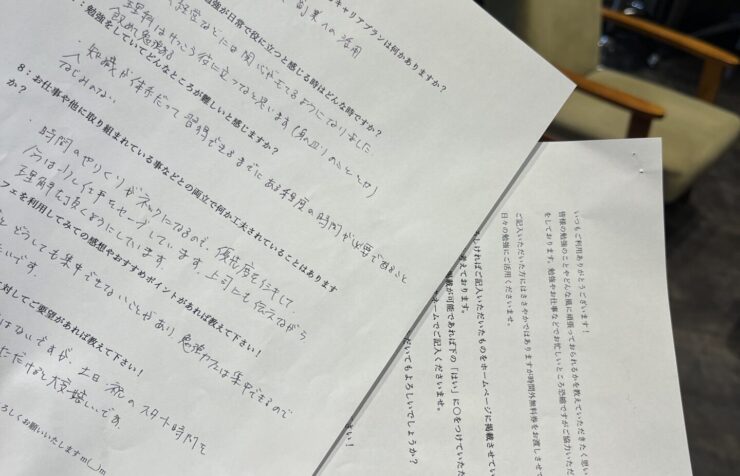 キャリアプランは何かありますか?
副業への活用
勉強が日常で役に立つと感じる時はどんな時ですか?
経営などには関心がもてるようになりました
理科はけっこう役に立つなと思います(身の回りのこととか)
：勉強をしていてどんなところが難しいと感じますか?
・知識が体系だって習得できるまでにある程度の時間が必要であること
なじみのない
8：お仕事や他に取り組まれている事などとの両立で何か工夫されていることはあります
か?
・時間のやりくりがネックになるので、優先度を付けて
今は少し仕事をセーブしています。上司にも伝えながら
理解を頂くようにしています
フェを利用してみての感想やおすすめポイントがあれば教えて下さい!
とどうしても集中できないことがあり勉強カフェは集中できるので
たいです。
対してご要望があれば教えて下さい!
はないですが、土日・祝のスタート時間を
ただけると大変嬉しいです。
ろしくお願いいたしますm(__)m
いつもご利用ありがとうございます!
皆様の勉強のことやどんな風に頑張っておられるかを教えていただきたく思い
をしております。勉強やお仕事などでお忙しいところ恐縮ですがご協力いただ
ご記入いただいた方にはささやかではありますが時間外無料券をお渡しさせて
日々の勉強にご活用くださいませ。
しければご記入いただいたものをホームページに掲載させてい
考えております。
掲載が可能であれば下の「はい」に○をつけていただ
ームでご記入くださいませ。
だいてもよろしいでしょうか?
さい!